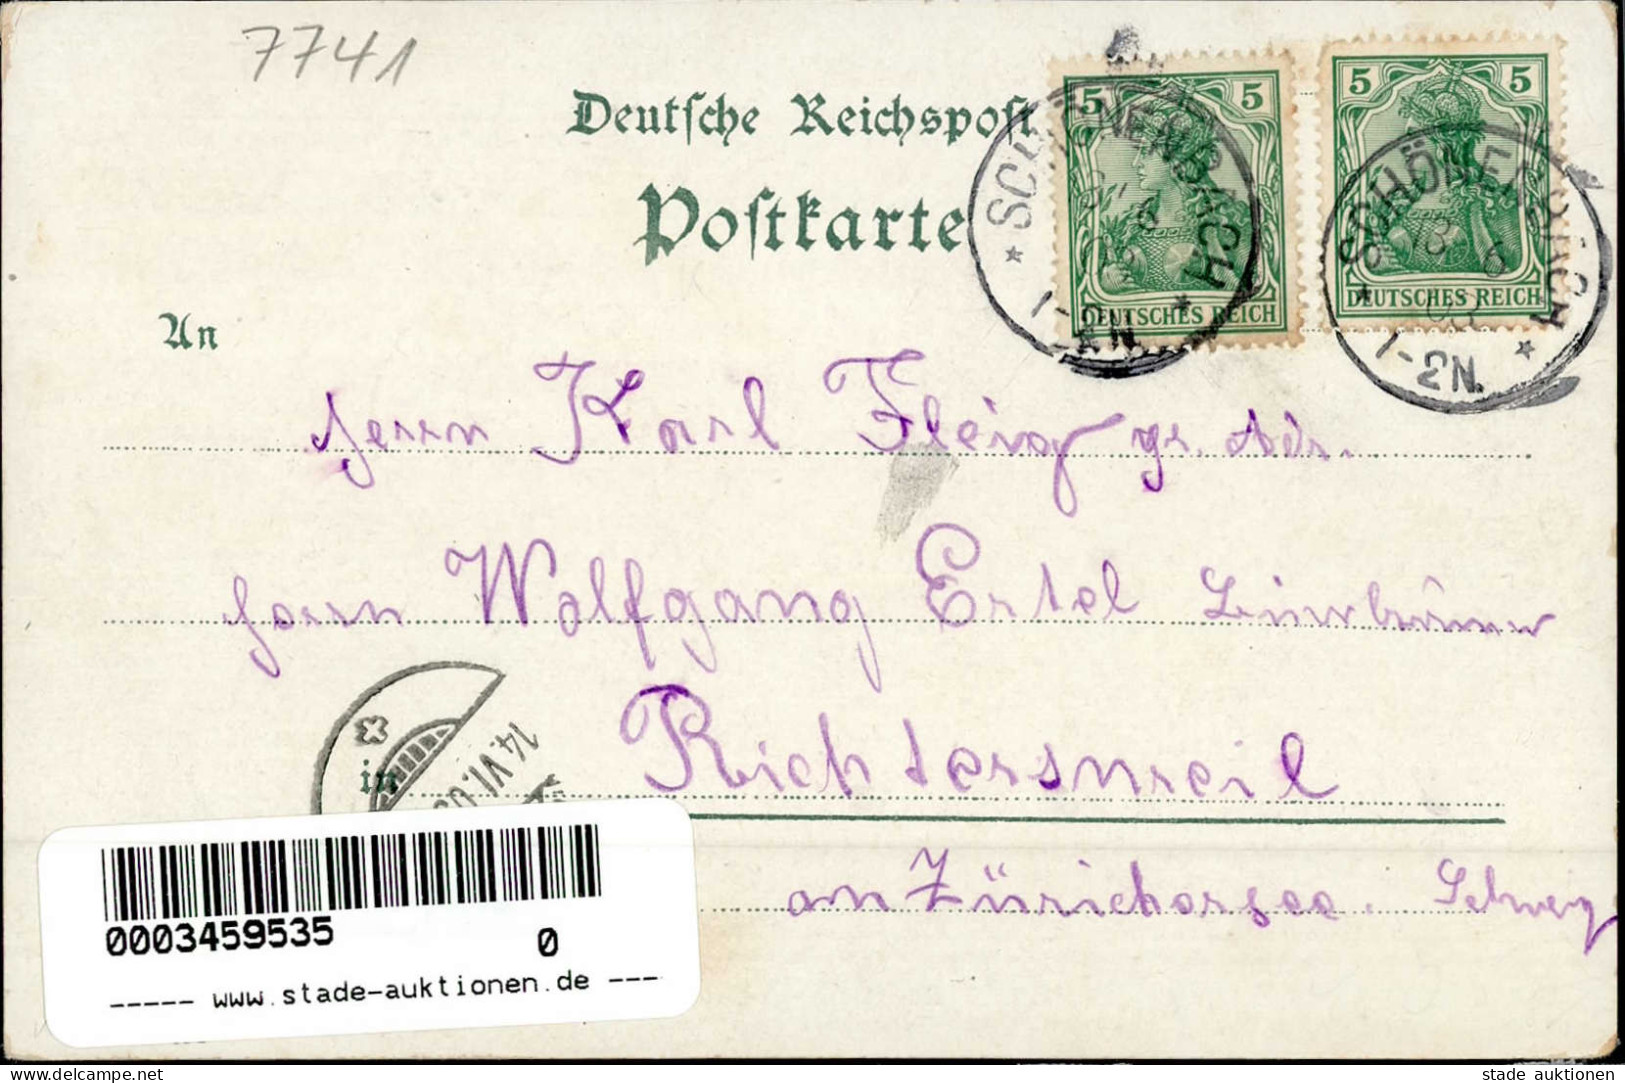 7741
Deutsche Reichspost
Postkarte
5 5
DEUTSCHES REICH
5 5
DEUTSCHES REICH
SCHÖNENBACH
1-2N.
SCHÖNENBACH
13 6
03
1-2N.
An
Herrn Karl Fleig gr. Adr.
Herrn Wolfgang Ertel
in Richtersweil
14.VI.03
an Zürichersee. Schweiz
0003459535 0
----- www.stade-auktionen.de ---
www.delcampe.net
stade auktionen